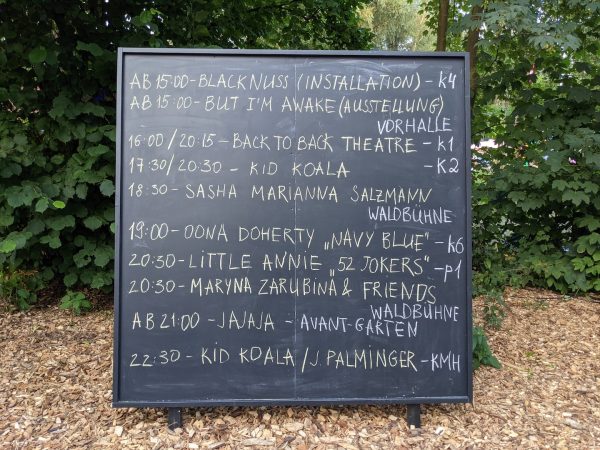 AB 15:00 - BLACKNUSS (INSTALLATION) - K4
AB 15:00 - BUT I'M AWAKE (AUSSTELLUNG)
VORHALLE
16:00/20:15 - BACK TO BACK THEATRE - K1
17:30/20:30 - KID KOALA - K2
18:30 - SASHA MARIANNA SALZMANN
WALDBÜHNE
19:00 - OONA DOHERTY „NAVY BLUE" - K6
20:30 - LITTLE ANNIE „52 JOKERS" - P1
20:30 - MARYNA ZARUBINA & FRIENDS
WALDBÜHNE
AB 21:00 - JAJAJA - AVANT-GARTEN
22:30 - KID KOALA / J. PALMINGER - KMH